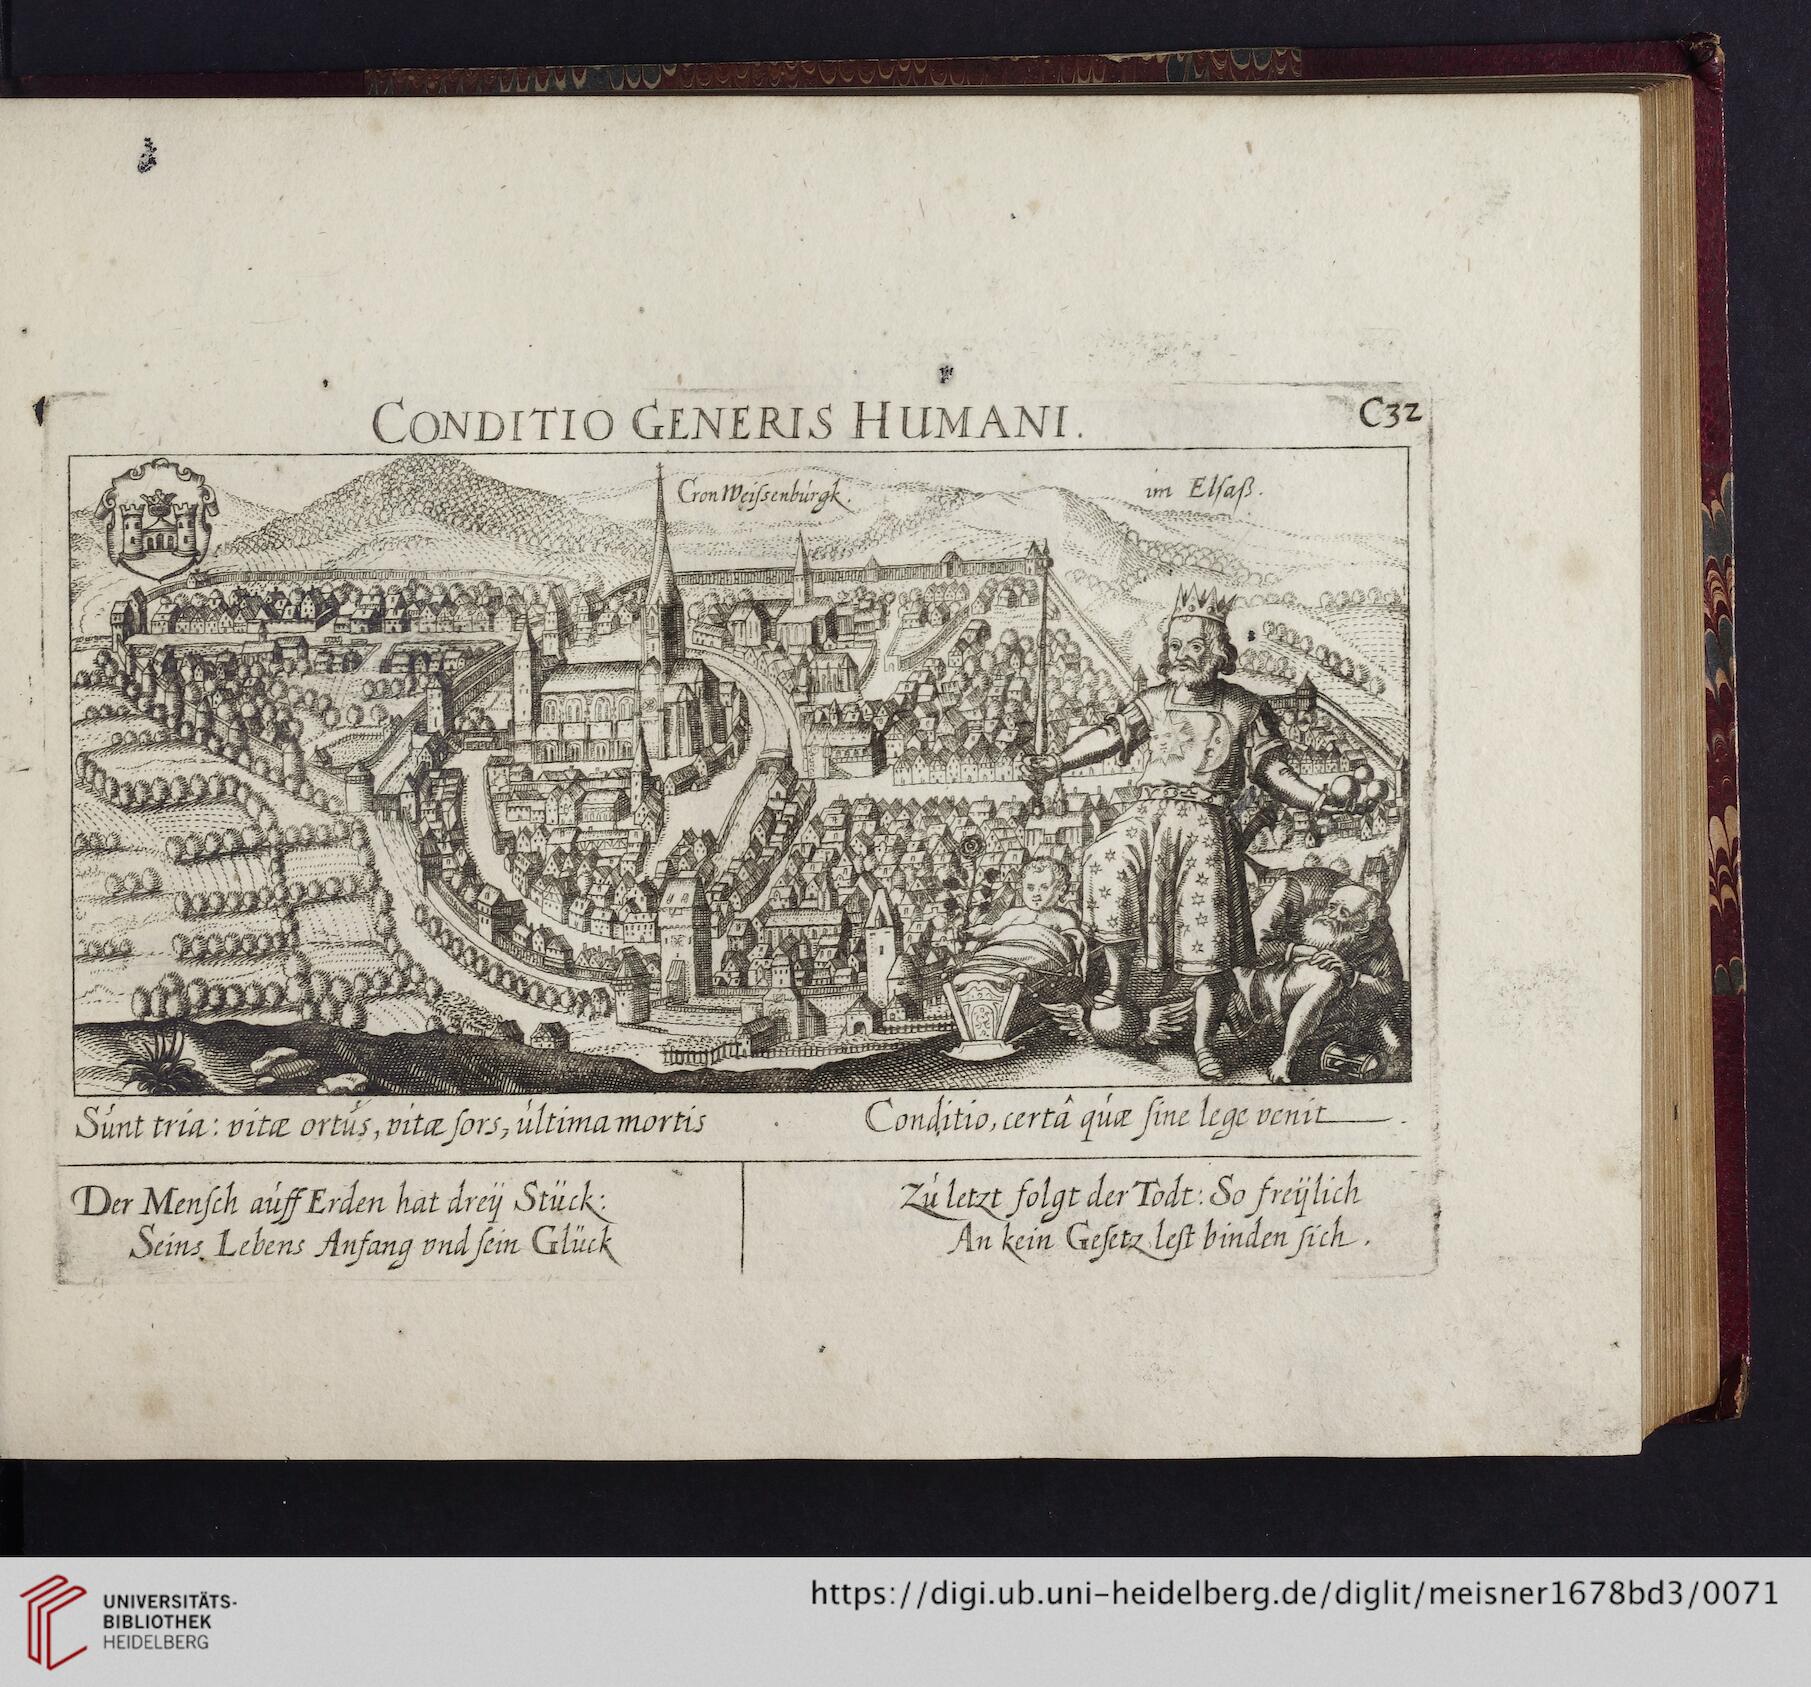 CONDITIO GENERIS HUMANI.
C32
Cron Weiſsenbúrgk.
im Elſaß.
Súnt tria: vitæ ortús, vitæ ſors, última mortis
Conditio, certâ qúæ ſine lege venit
Der Menſch aúff Erden hat dreÿ Stück:
Seins Lebens Anfang vnd ſein Glück
Zú letzt folgt der Todt: So freÿlich
An kein Geſetz leſt binden ſich.
UNIVERSITÄTS-
BIBLIOTHEK
HEIDELBERG
https://digi.ub.uni-heidelberg.de/diglit/meisner1678bd3/0071